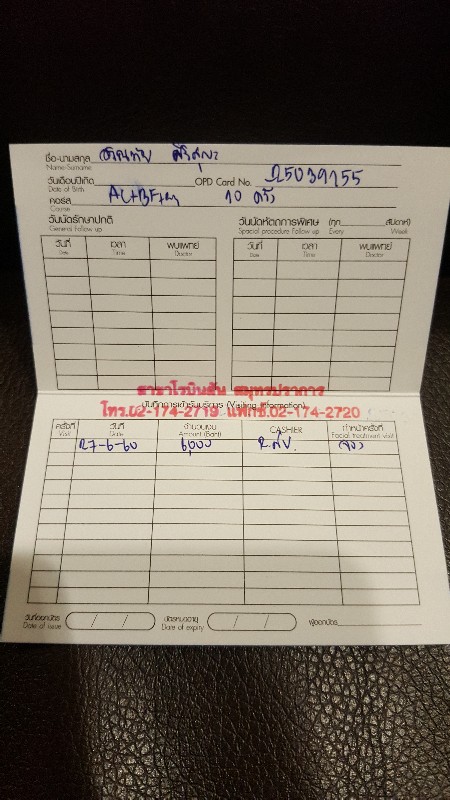 ชื่อ-นามสกุล
Name-Surname
วันเดือนปีเกิด OPD Card No.
Date of Birth
คอร์ส AC+BF+ 10 ครั้ง
Course
วันนัดรักษาปกติ วันนัดหัตถการพิเศษ (ทุก สัปดาห์)
General Follow up Special procedure Follow up Every Week
วันที่ เวลา พบแพทย์ วันที่ เวลา พบแพทย์
Date Time Doctor Date Time Doctor
สาขาโรบินสัน สมุทรปราการ
บันทึกการเข้ารับบริการ (Visiting Information)
โทร.02-174-2719 แฟกซ์.02-174-2720
ครั้งที่ วันที่ จำนวนเงิน CASHIER ทำหน้าครั้งที่
Visit Date Amount (Baht) Facial treatment visit
27-6-60 6,000
วันที่ออกบัตร / / บัตรหมดอายุ / / ผู้ออกบัตร
Date of issue Date of expiry